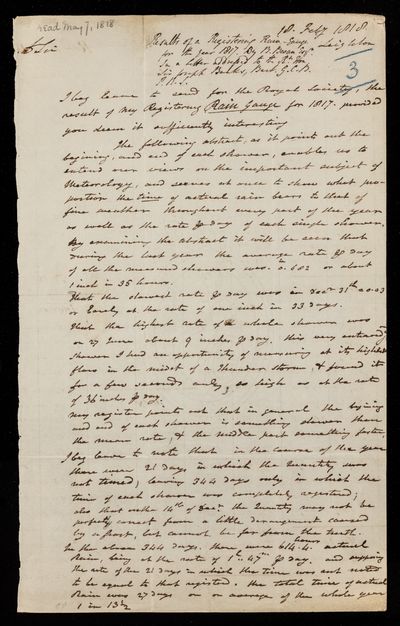 read May 7, 1818
18. Feby 1818.
Leighton
3
Results of a Registering Rain-Gauge
for the year 1817. By B. Bevan Esqr
In a letter addressed to the Rt Hon
Sir Joseph Banks, Bart G.C.B.
P.R.S.
Sir
I beg leave to send for the Royal Society, the
result of my Registering Rain Gauge for 1817. provided
you deem it sufficiently interesting
The following abstract, as it points out the
begining, and end of each shower, enables us to
extend our views on the important subject of
Meteorology, and serves at once to shew what pro-
portion the time of actual rain bears to that of
fine weather throughout every part of the year
as well as the rate P day of each single shower.
By examining the abstract it will be seen that
during the last year the average rate P day
of all the measured showers was. 0.682 or about
1 inch in 35 hours.
That the slowest rate P day was on Decr 31st 0.03
or barely at the rate of one inch in 33 days.
That the highest rate of a whole shower was
on 27 June about 9 inches P day. this very extraordy
shower I had an opportunity of measuring at its highest
flow in the midst of a Thunder storm, & found it
for a few seconds only, as high as at the rate
of 36 inches P day.
my register points out that in general the begining
and end of each shower is something slower than
the mean rate, & the middle part something faster.
I beg leave to note that in the course of the year
there were 21 days in which the quantity was
not timed, leaving 344 days only in which the
time of each shower was completely registered;
also that under the 14th of the quantity may not be
perfectly correct from a little derangement caused
by a frost, but cannot be far from the truth.
In the above 344 days. there were 614.4 hours actual
Rain, being at the rate of 1h.47m P day. and supposing
the rate of the 21 days in which the time was not noted
to be equal to that registered. the total time of actual
Rain was 27 days or on an average of the whole year
1 in 13½